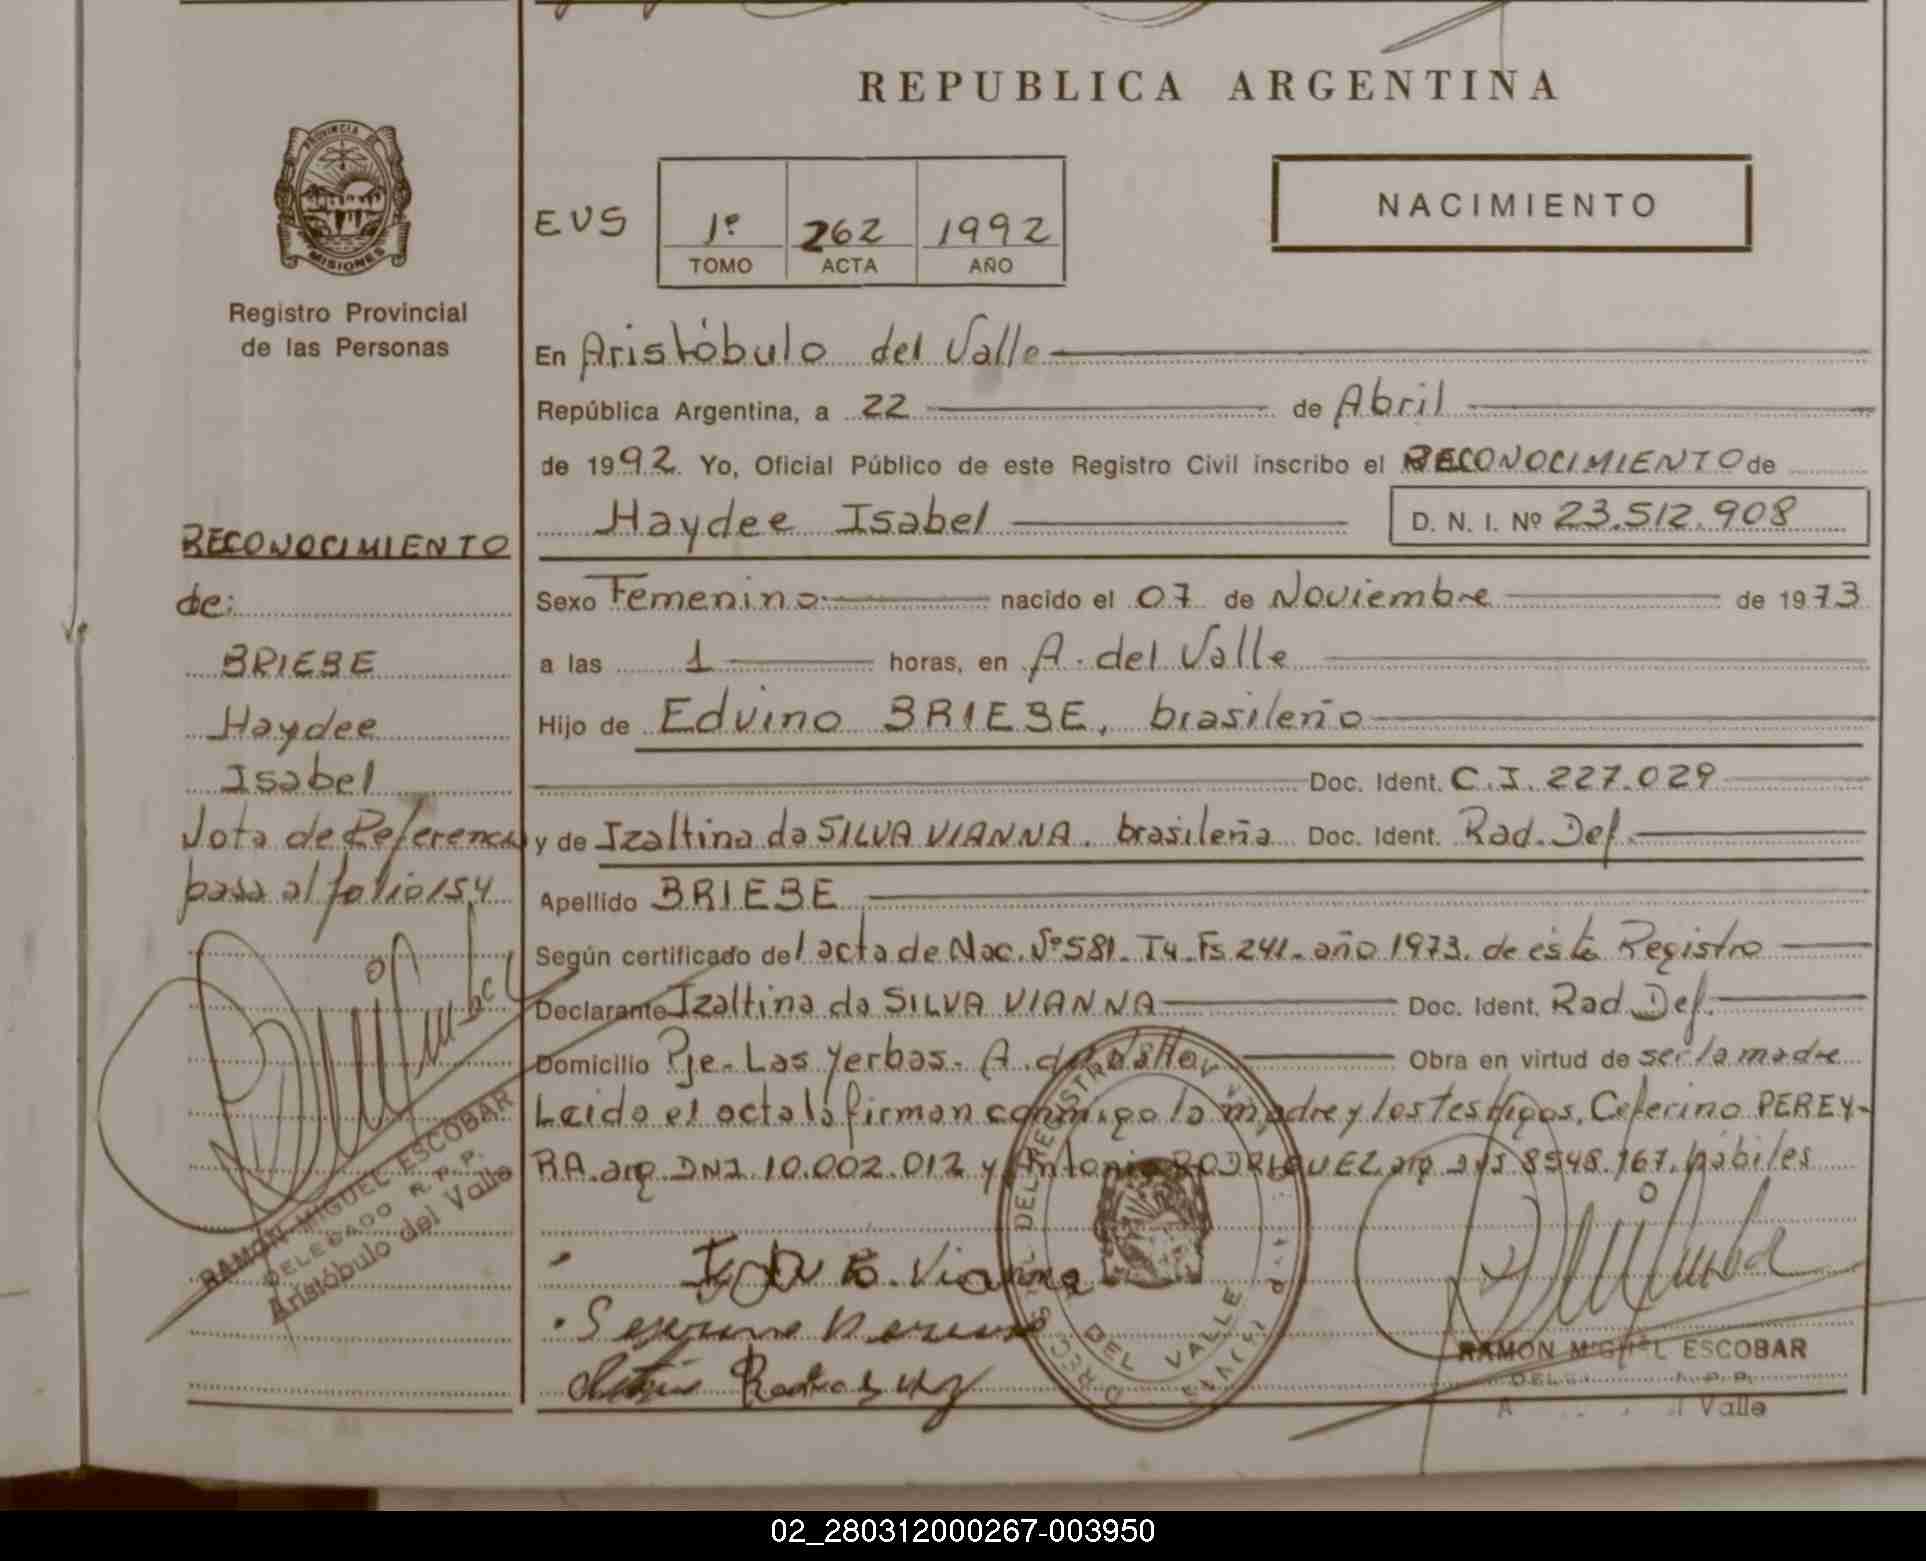 REPUBLICA ARGENTINA
PROVINCIA DE
MISIONES
Registro Provincial
de las Personas
EVS
1º 262 1992
TOMO ACTA AÑO
NACIMIENTO
En Aristóbulo del Valle
República Argentina, a 22 de Abril
de 1992. Yo, Oficial Público de este Registro Civil inscribo el RECONOCIMIENTO de
Haydee Isabel D. N. I. Nº 23.512.908
Sexo Femenino nacido el 07 de Noviembre de 1973
a las 1 horas, en A. del Valle
Hijo de Edvino BRIEBE, brasileño
Doc. Ident. C.I. 227.029
y de Izaltina da SILVA VIANNA. brasileña Doc. Ident. Rad. Def.
Apellido BRIEBE
Según certificado del acta de Nac. Nº 581. Tº 4. Fs 241. año 1973. de este Registro
Declarante Izaltina da SILVA VIANNA Doc. Ident. Rad. Def.
Domicilio Pje. Las Yerbas. A. del Valle Obra en virtud de ser la madre
Leida el acta la firman conmigo la madre y los testigos, Ceferino PEREY-
RA. arg. DNI. 10.002.012 y Antonio RODRIGUEZ arg. DNI 8548.767. hábiles
Vianna
DEL VALLE
RAMON MIGUEL ESCOBAR
Valle
RECONOCIMIENTO
de:
BRIEBE
Haydee
Isabel
Nota de Referencia
pasa al folio 154
RAMON MIGUEL ESCOBAR
DELEGADO R. P. P.
Aristóbulo del Valle
02_280312000267-003950